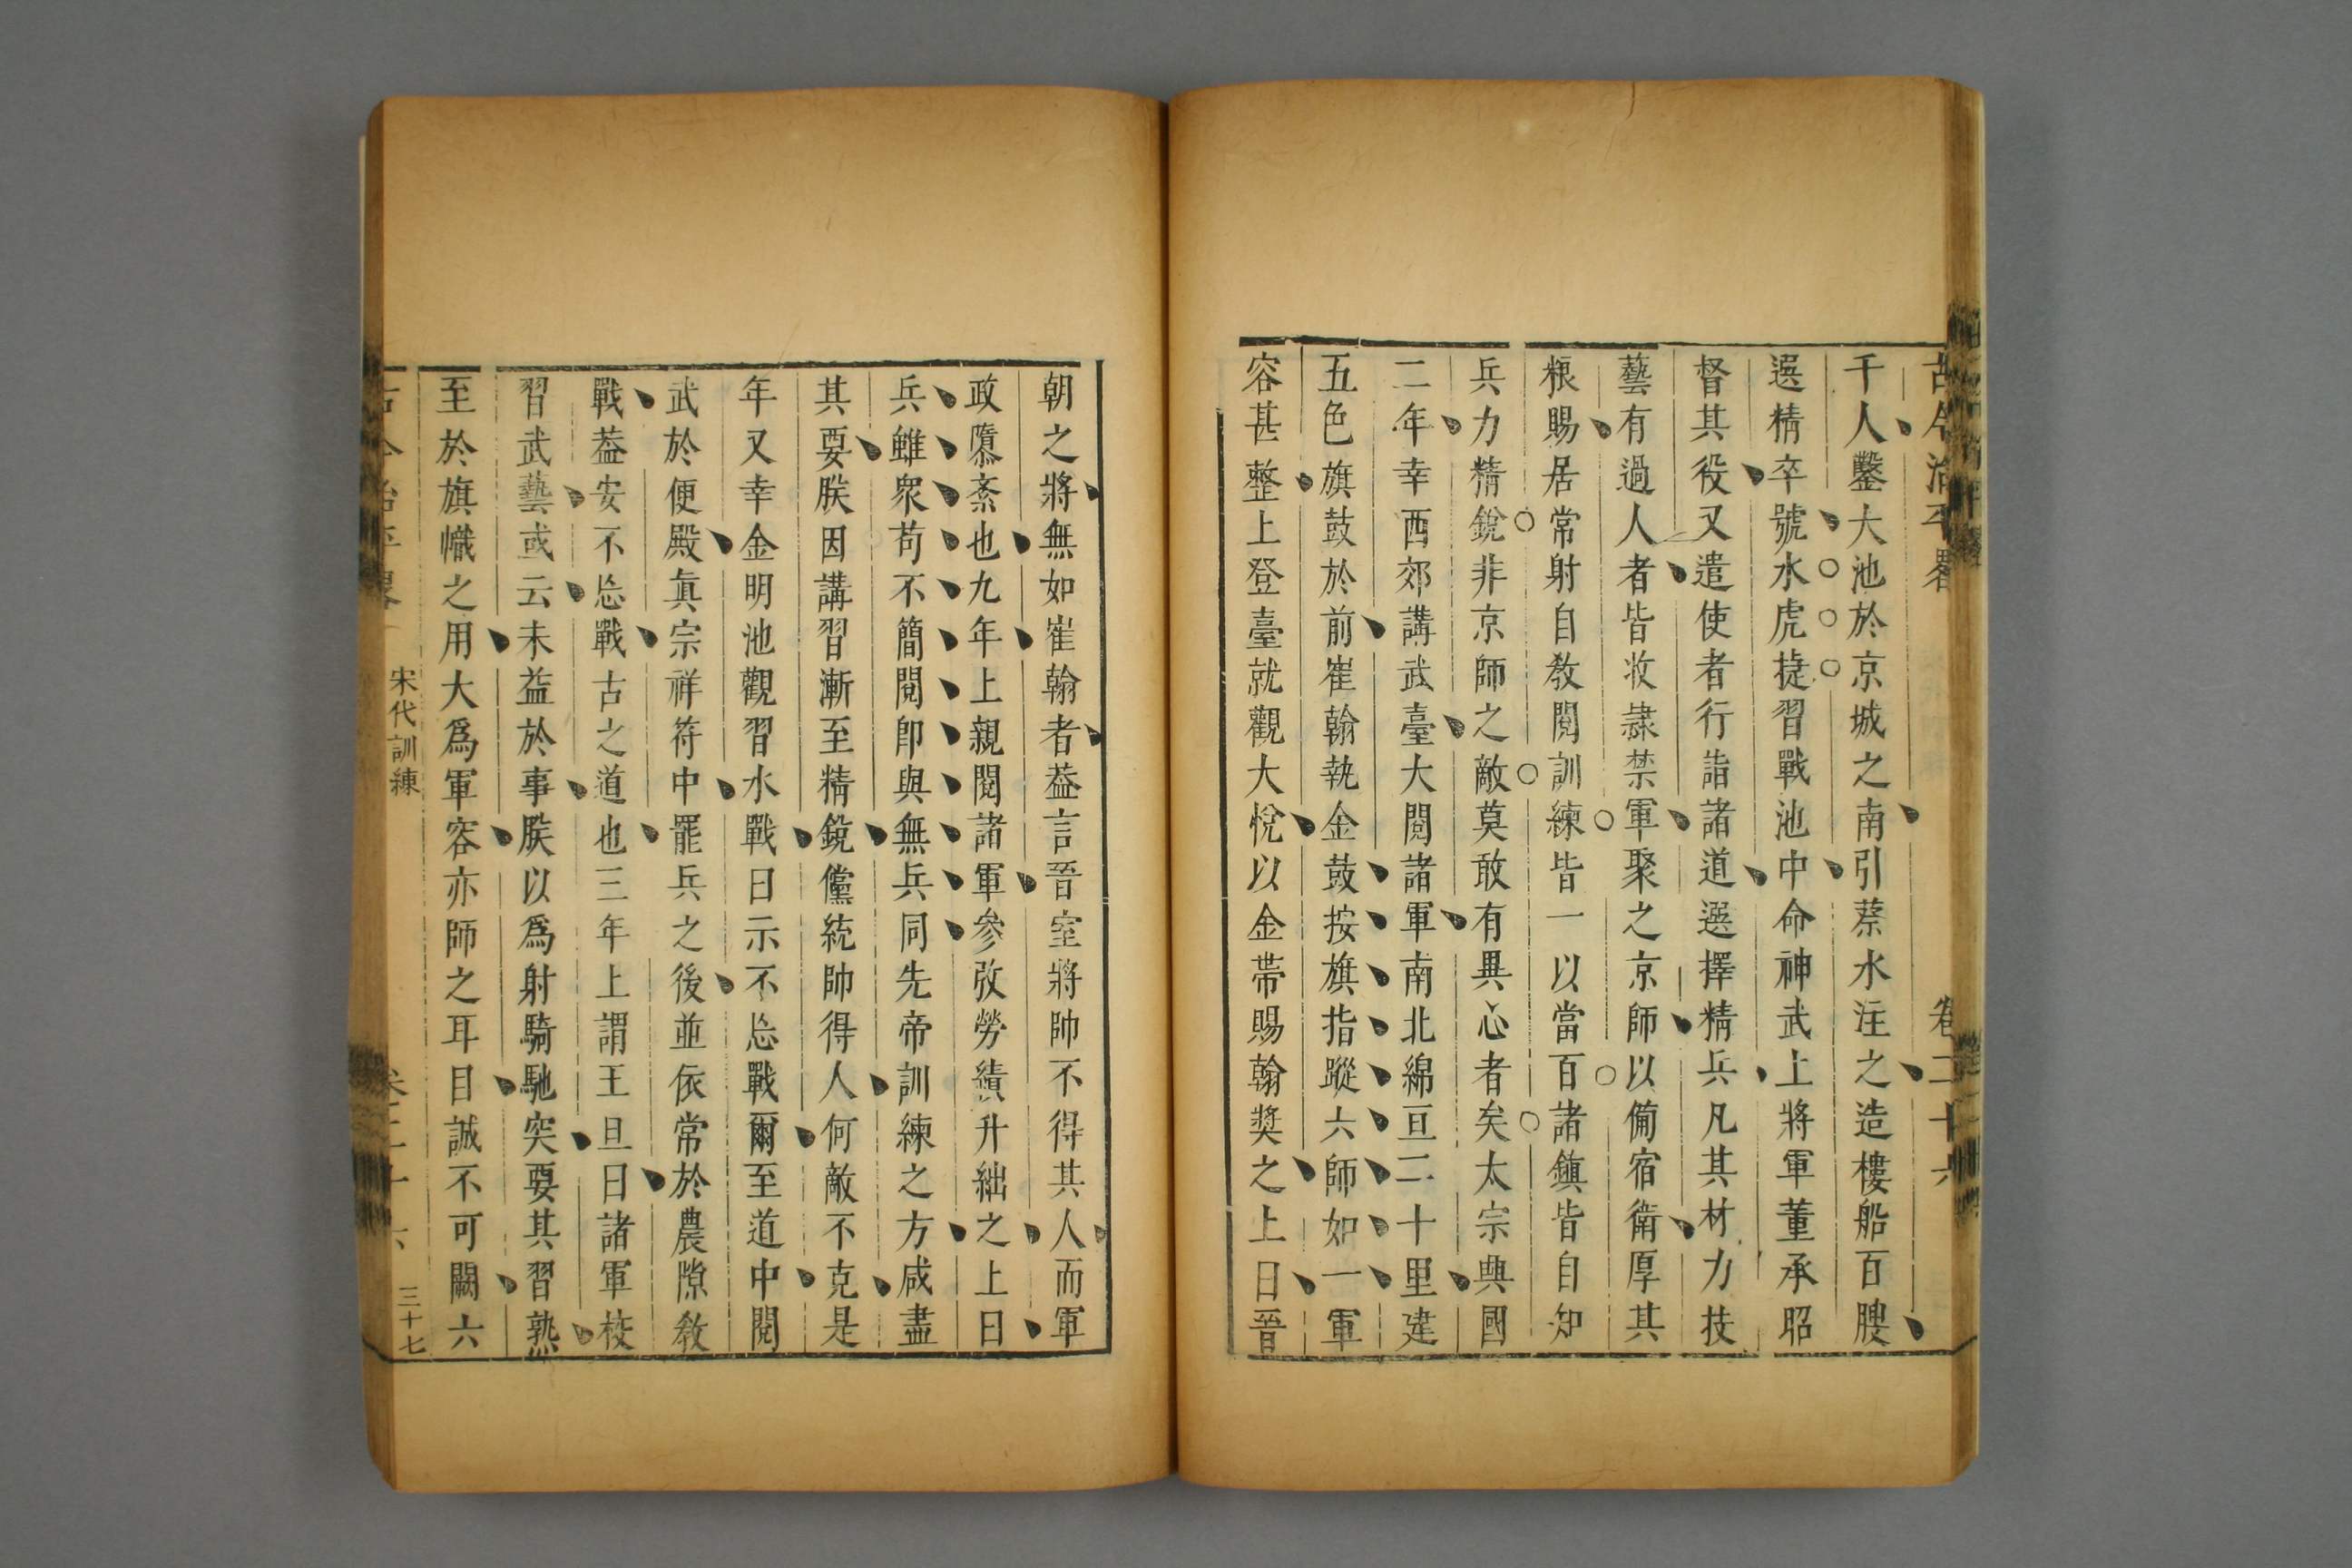 古今治平畧 卷二十六
千人鑿大池於京城之南引蔡水注之造樓船百艘
選精卒號水虎捷習戰池中命神武上將軍董承昭
督其役又遣使者行詣諸道選擇精兵凡其材力技
藝有過人者皆收隷禁軍聚之京師以備宿衛厚其
粮賜居常射自敎閱訓練皆一以當百諸鎮皆自知
兵力精銳非京師之敵莫敢有異心者矣太宗興國
二年幸西郊講武臺大閱諸軍南北綿亘二十里建
五色旗鼓於前崔翰執金鼓按旗指蹤六師如一軍
容甚整上登臺就觀大悅以金帶賜翰奬之上曰晉
朝之將無如崔翰者葢言晉室將帥不得其人而軍
政隳紊也九年上親閱諸軍參攷勞績升絀之上曰
兵雖衆苟不簡閱卽與無兵同先帝訓練之方咸盡
其要朕因講習漸至精銳儻統帥得人何敵不克是
年又幸金明池觀習水戰曰示不忘戰爾至道中閱
武於便殿眞宗祥符中罷兵之後並依常於農隙敎
戰葢安不忘戰古之道也三年上謂王旦曰諸軍校
習武藝或云未益於事朕以爲射騎馳突要其習熟
至於旗幟之用大爲軍容亦師之耳目誠不可闕六
古今治平畧 宋代訓練 卷二十六 三十七